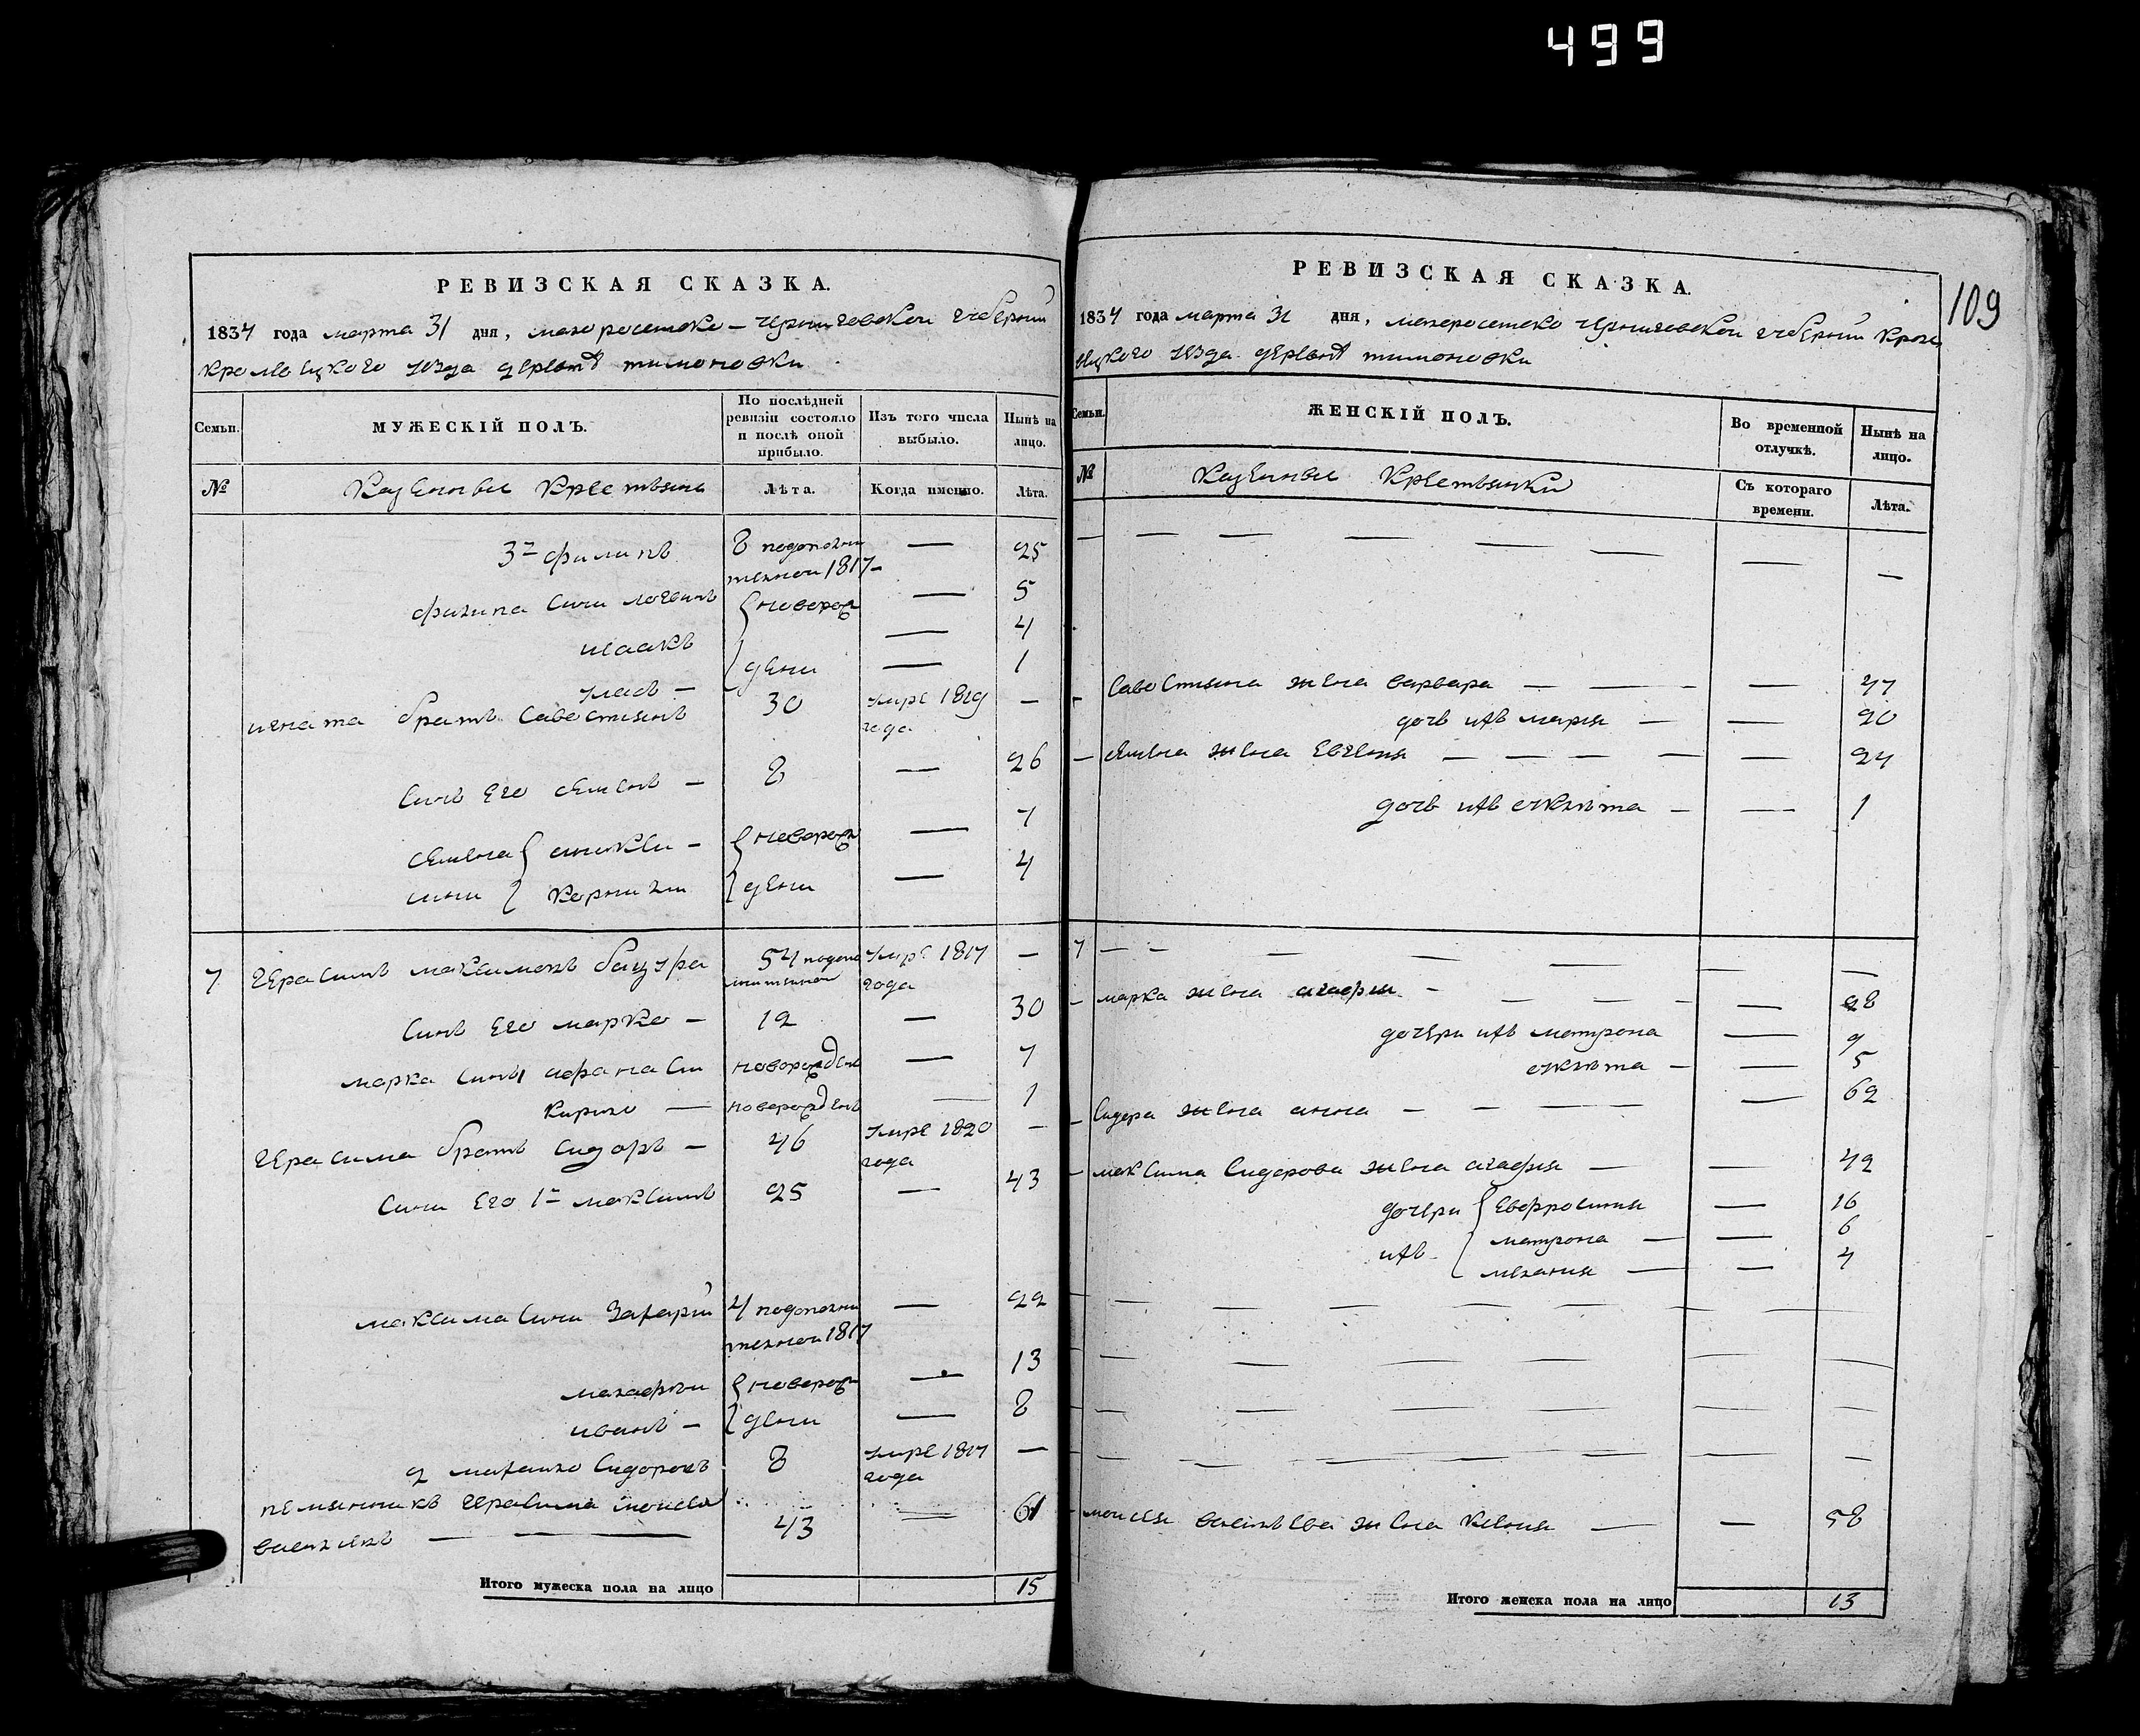 499
РЕВИЗСКАЯ СКАЗКА.
1834 года марта 31 дня, малоросейско-Черниговской губернии
кролевецкого уезда деревнѣ тимоновки
Семьи.
МУЖЕСКІЙ ПОЛЪ.
По послѣдней
ревизіи состояло
и послѣ оной
прибыло.
Изъ того числа
выбыло.
Нынѣ на
лицо.
№
Казенные Крестьяне
Лѣта.
Когда именно.
Лѣта.
3й филипъ 8 — 25
1817-
филипа сини логвинъ новорож — 5
исаакъ — 4
улас — дени — 1
игната братъ савостиянъ 30 умре 1829 —
года
Синъ его семенъ — 8 — 26
семена — новорож — 7
сини корнилий дени — 4
7 Герасимъ максимовъ бацура 54 умре 1817 —
года
Синъ его марко — 12 — 30
марка сины афанасий новорожденъ — 7
кирило — новорожденъ — 1
Герасима братъ сидоръ — 46 умре 1820 —
года
Сини его 1й максимъ 25 — 43
максима сини захарий 4 — 22
1817
малафей новорож — 13
иванъ — дени — 8
2 михайло сидоровъ 8 умре 1817 —
года
племянникъ герасима моисей
43 — 61
Итого мужеска пола на лицо 15
РЕВИЗСКАЯ СКАЗКА.
109
1834 года марта 31 дня, малоросейско Черниговской губернии кроле
вецкого уезда деревнѣ тимоновки
Семьи.
ЖЕНСКІЙ ПОЛЪ.
Во временной
отлучкѣ.
Нынѣ на
лицо.
№
Казенные Крестьянки
Съ котораго
времени.
Лѣта.
савостияна жена варвара — — 47
дочь ихъ мария — — 20
семена жена евгения — — 24
дочь ихъ — — 1
7 — —
марка жена агафия — — 28
дочери ихъ матрона — 9
— — 5
сидора жена анна — — 62
максима сидорова жена агафия — — 42
дочери евфросиния — 16
ихъ матрона — — 6
мелания — — 4
моисея жена ксения — — 58
Итого женска пола на лицо 13